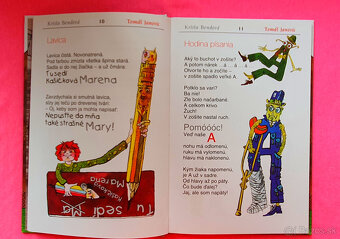 Krista Bendová 10 Tomáš Janovic
Lavica
Lavica čistá. Novonatretá.
Pod farbou zmizla všetka špina stará.
Sadla si do nej žiačka – a už čmára:
Tu sedí
Kašičková Marena
Zarozdýchala si smutná lavica,
slzy jej tečú po drevenej tvári:
– Ó, keby som ja mohla písať!
Nepusťte do mňa
také strašné Mary!
Kašičková
Marena
Tu sedí Ma
Krista Bendová 11 Tomáš Janovic
Hodina písania
Aký to buchot v zošite?
A potom nárek ...á...á...á...
Otvorilo ho a v zošite –
v zošite spadlo veľké A.
Ba nie!
Zle bolo načarbané.
A celkom krivo
Žuch!
V zošite nastal ruch:
Pomóóóc!
Veľké A
nohu má odlomenú,
ruku má vylomenú,
hlavu má naklonenú.
Kým žiaka napomenú,
je A už v sadre.
Od hlavy až po päty.
Čo bude ďalej?
Jaj, ale som napätý!